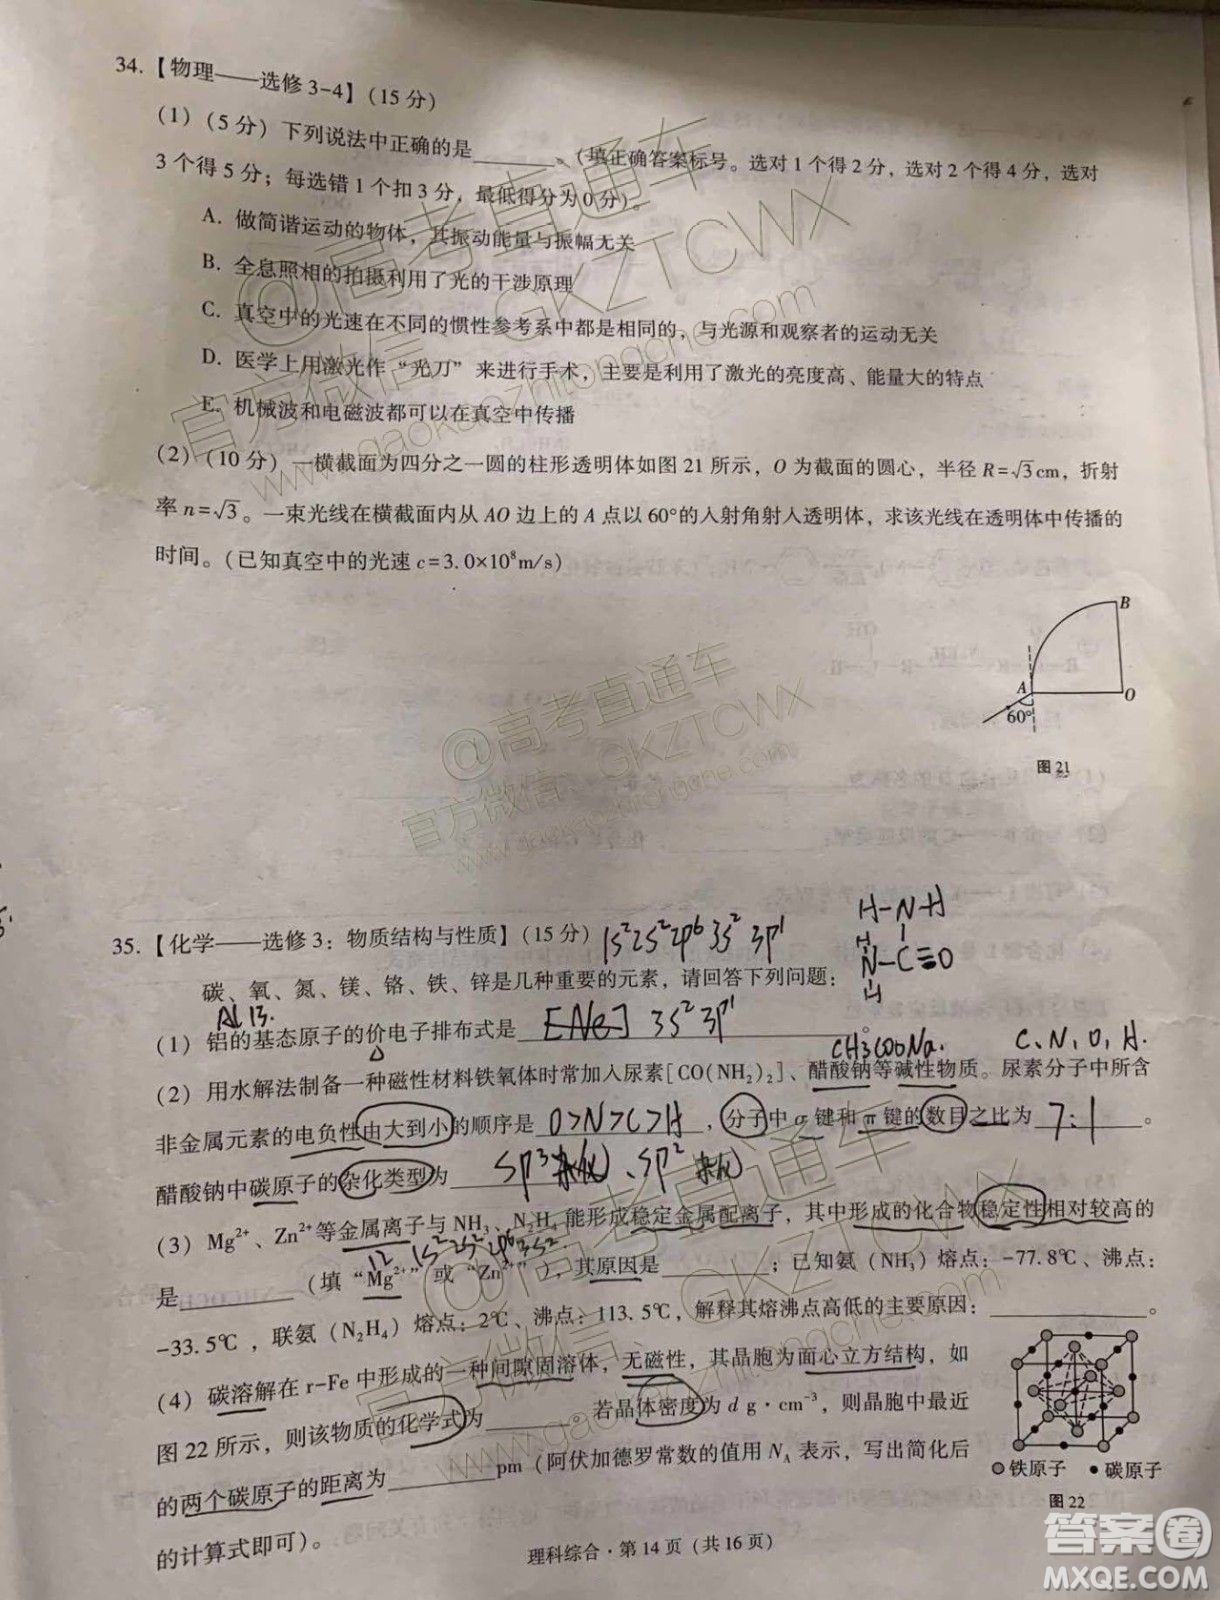 34.【物理——选修3-4】(15分)
(1)(5分)下列说法中正确的是______。(填正确答案标号。选对1个得2分，选对2个得4分，选对
3个得5分；每选错1个扣3分，最低得分为0分)。
A. 做简谐运动的物体，其振动能量与振幅无关
B. 全息照相的拍摄利用了光的干涉原理
C. 真空中的光速在不同的惯性参考系中都是相同的，与光源和观察者的运动无关
D. 医学上用激光作“光刀”来进行手术，主要是利用了激光的亮度高、能量大的特点
E. 机械波和电磁波都可以在真空中传播
(2)(10分)一横截面为四分之一圆的柱形透明体如图21所示，O为截面的圆心，半径R=√3cm，折射
率n=√3。一束光线在横截面内从AO边上的A点以60°的入射角射入透明体，求该光线在透明体中传播的
时间。(已知真空中的光速c=3.0×10⁸m/s)
B
A
O
60°
图21
35.【化学——选修3：物质结构与性质】(15分) 1s²2s²2p⁶3s²3p¹
H-N-H
N-C=O
H
碳、氧、氮、镁、铬、铁、锌是几种重要的元素，请回答下列问题：
Al 13.
(1) 铝的基态原子的价电子排布式是 [Ne] 3s²3p¹ 。
CH3COONa. C、N、O、H.
(2) 用水解法制备一种磁性材料铁氧体时常加入尿素[CO(NH₂)₂]、醋酸钠等碱性物质。尿素分子中所含
非金属元素的电负性由大到小的顺序是 O>N>C>H ，分子中σ键和π键的数目之比为 7:1 。
醋酸钠中碳原子的杂化类型为 sp³杂化、sp²杂化
(3) Mg²⁺、Zn²⁺等金属离子与NH₃、N₂H₄能形成稳定金属配离子，其中形成的化合物稳定性相对较高的
12 1s²2s²2p⁶3s².
是______(填“Mg²⁺”或“Zn²⁺”)，其原因是______；已知氨(NH₃)熔点：-77.8℃、沸点：
-33.5℃，联氨(N₂H₄)熔点：2℃、沸点：113.5℃，解释其熔沸点高低的主要原因：______。
(4) 碳溶解在r-Fe中形成的一种间隙固溶体，无磁性，其晶胞为面心立方结构，如
图22所示，则该物质的化学式为______。若晶体密度为d g·cm⁻³，则晶胞中最近
的两个碳原子的距离为______pm(阿伏加德罗常数的值用Nₐ表示，写出简化后
的计算式即可)。
铁原子 碳原子
图22
理科综合·第14页(共16页)
@高考直通车
官方微信 GKZTCWX
www.gaokaozhitongche.com
@高考直通车
官方微信 GKZTCWX
www.gaokaozhitongche.com
@高考直通车
官方微信 GKZTCWX
答案圈
MXQE.COM